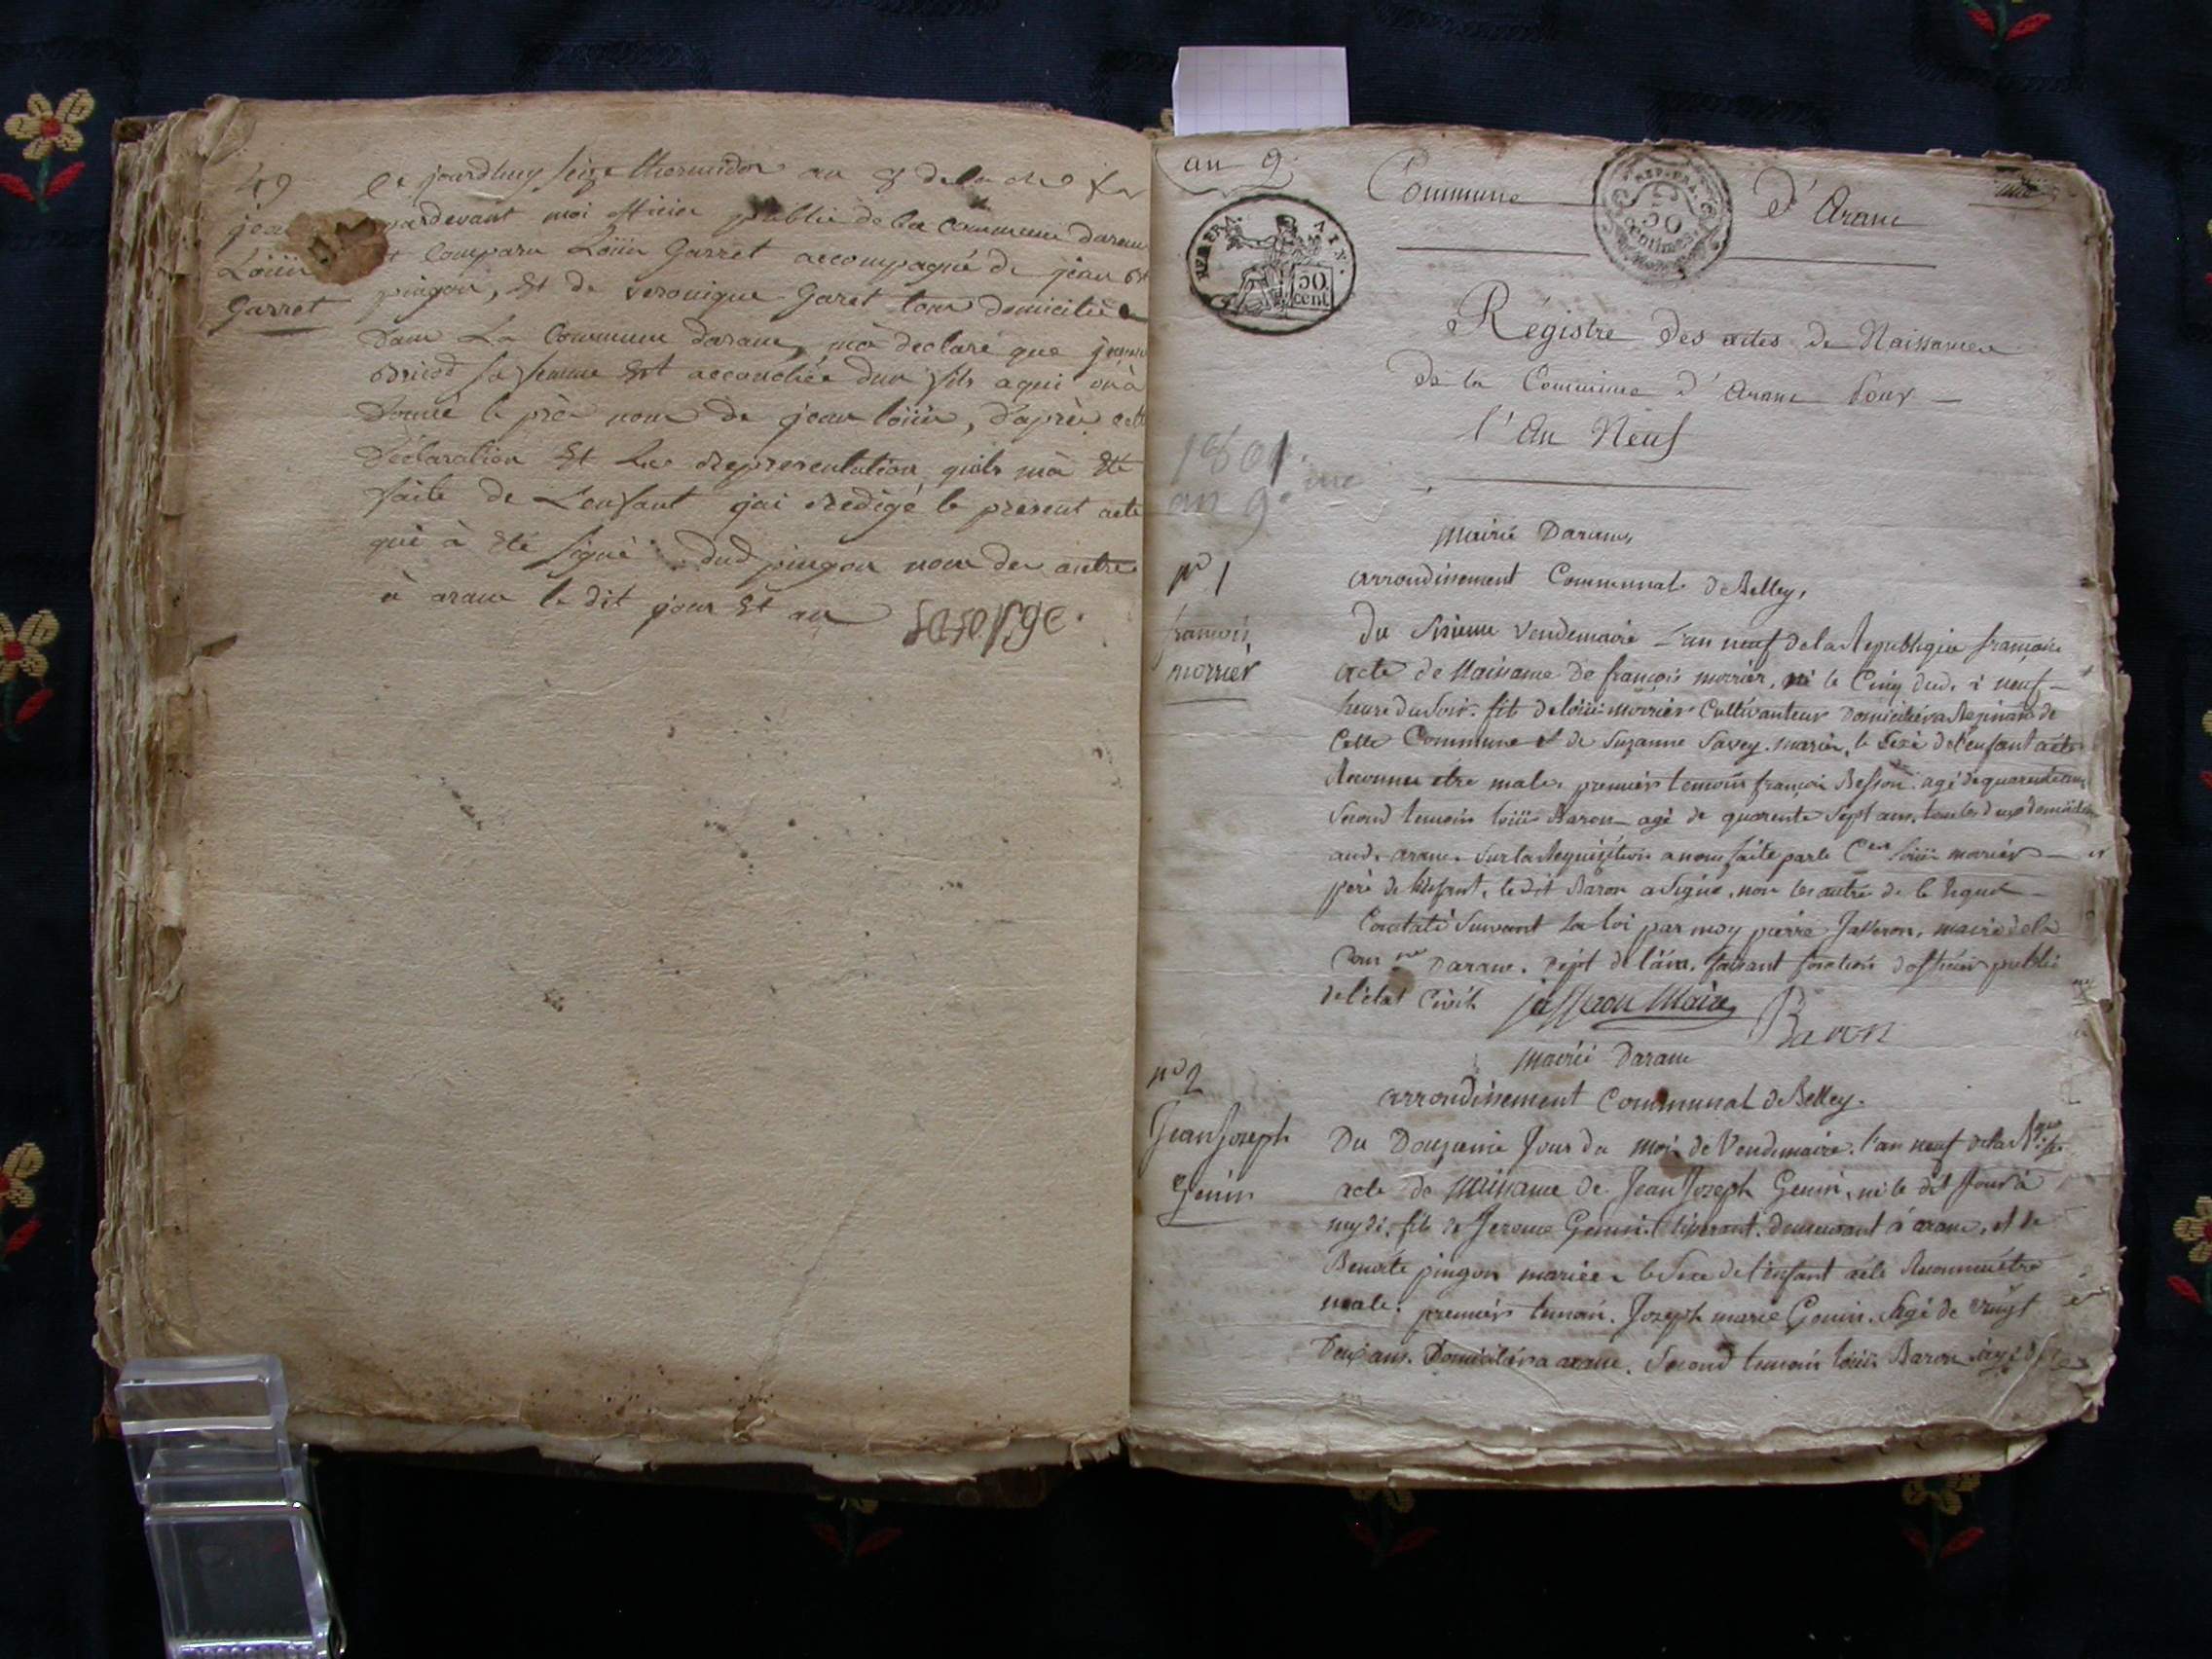 49
jean
Loüis
Garret
Ce jourdhuy seize thermidor an 8 de la
pardevant moi officier public de la commune daranc
est comparu Loüis Garret accompagné de jean
pingon, Et de veronique Garet tous domicilié
dans La Commune daranc, mà declaré que jeanne
sa femme Est accouchée dun fils aqui on à
donné le prés nom de jean loüis, d'après cette
Déclaration Et La representation quils mà Eté
faite de L'enfant jai redigé le present acte
qui à Eté signé dud pingon non des autres
à aranc le dit jour Et an
an 9.
Commune d'Aranc
REP. FRA.
50
centimes
AIN.
50
cent
Régistre des actes de Naissances
de la Commune d'Aranc Pour
l'An Neuf
1801.
an 9.eme
Mairie Daranc,
arrondissement Communal de Belley,
nº 1
francois
morrier
Du Sixieme Vendemiaire l'an neuf de la Republique francoise
acte de Naissance de françois morrier, né le Cinq dud. à neuf
heure du soir. fils de loüis morrier Cultivanteur Domicilié a Rezinand de
Cette Commune et de Suzanne Savey. mariés, le Sexe de l'enfant a été
Reconnu etre male, premier temoin françois Besson agé de quarente
Second temoin loüis Baron agé de quarente Sept ans, tous les deux
aud. aranc. Sur la Requisition a nous faite par le Cen loüis morier
pere de l'enfant, le dit Baron a Signé, non les autre de le Requis
Constaté Suivant La loi par moy pierre Jasseron, maire de la
Com ne Daranc. Dept de l'ain. faisant fonction d'officier public
de l'état Civil jasseron Maire Baron
Mairie Daranc
arrondissement Communal de Belley.
nº 2
Jean Joseph
Genin
Du Douzieme Jour du mois de Vendemiaire. l'an neuf de la Rque
acte de Naissance de Jean Jozeph Genin, né le dit Jour à
mydi, fils de Jerome Genin. demeurant à aranc, et de
Benoite pingon mariée le Sexe de l'enfant a été Reconnu étre
male. premier temoin. Jozeph marie Genin. agé de vingt
Deux ans. Domicilié a aranc. Second temoin loüis Baron agé de